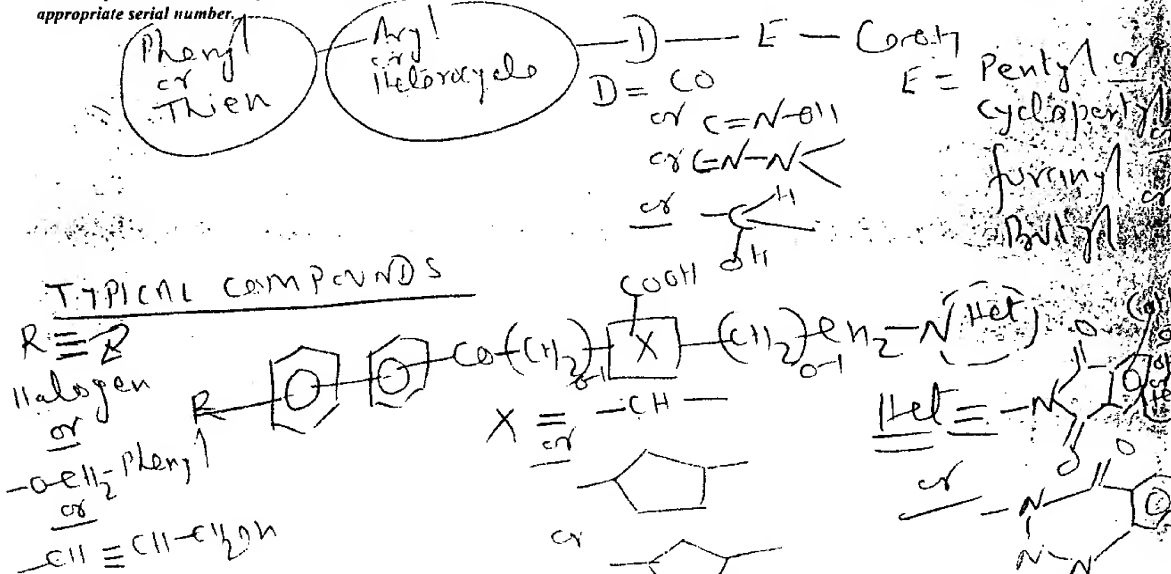 appropriate serial number.
Phenyl or Thien
Aryl or Heterocyclo
— D — E — COOH
D = CO
or C=N-OH
or C=N-N
or -C H OH
E = Pentyl or
cyclopentyl or
furanyl or
Butyl
TYPICAL COMPOUNDS
R ≡
Halogen
or
-O-CH2-Phenyl
or
-CH≡CH-CH2OH
R — CO-(CH2)0-1 X (CH2)0-1 CH2-N Het
COOH
X ≡ -CH-
or
or
Het ≡ -N O O
or
-N O
N-N